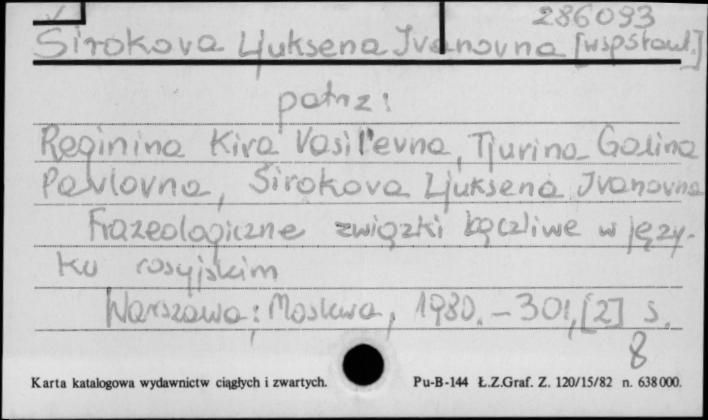 286093
Širokova Ljuksena Ivanovna [współaut.]
patrz:
Reginina Kira Vasil'evna, Tjurina Galina
Pavlovna, Širokova Ljuksena Ivanovna
Frazeologiczne związki łączliwe w języ-
ku rosyjskim
Warszawa; Moskwa, 1980. - 301, [2] s.
8
Karta katalogowa wydawnictw ciągłych i zwartych. Pu-B-144 Ł.Z.Graf. Z. 120/15/82 n. 638000.